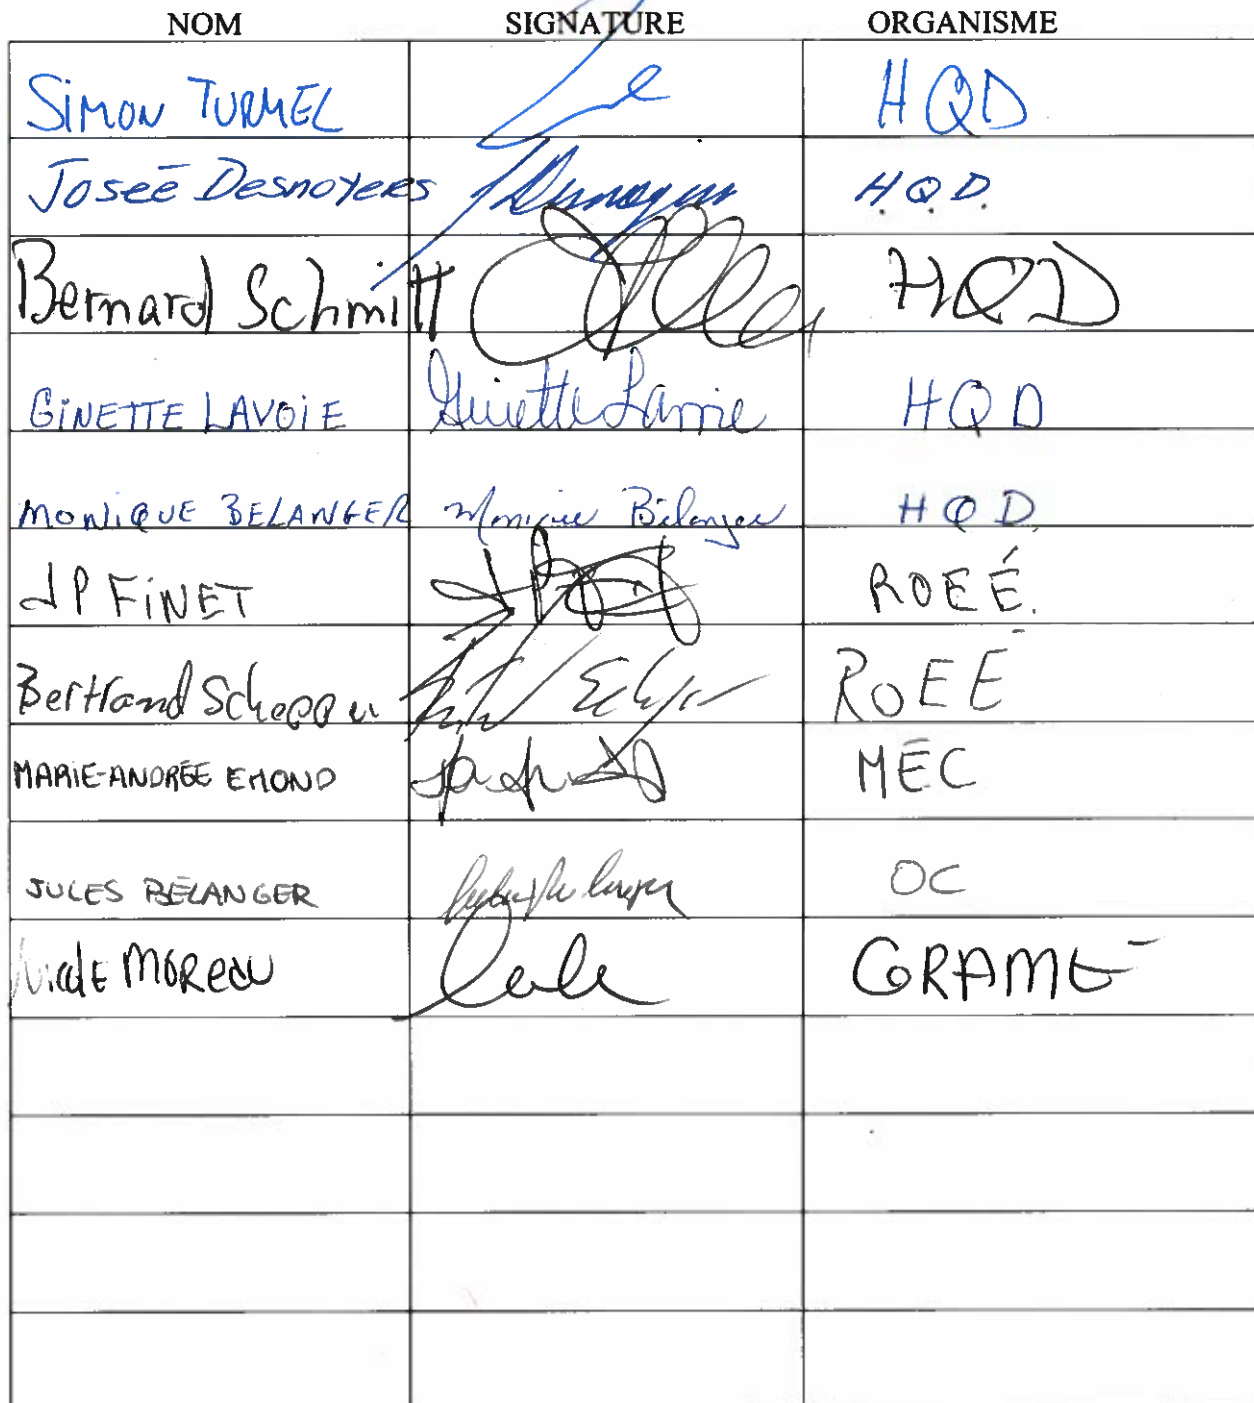 NOM SIGNATURE ORGANISME
SIMON TURMEL HQD
Joseé Desnoyers HQD.
Bernard Schmitt HQD
GINETTE LAVOIE Ginette Lavoie HQD
MONIQUE BELANGER Monique Bélanger HQD
JP FINET ROEÉ.
Bertrand ROEÉ
MARIE-ANDRÉE EMOND MÉC
JULES BÉLANGER OC
MOREAU GRAME